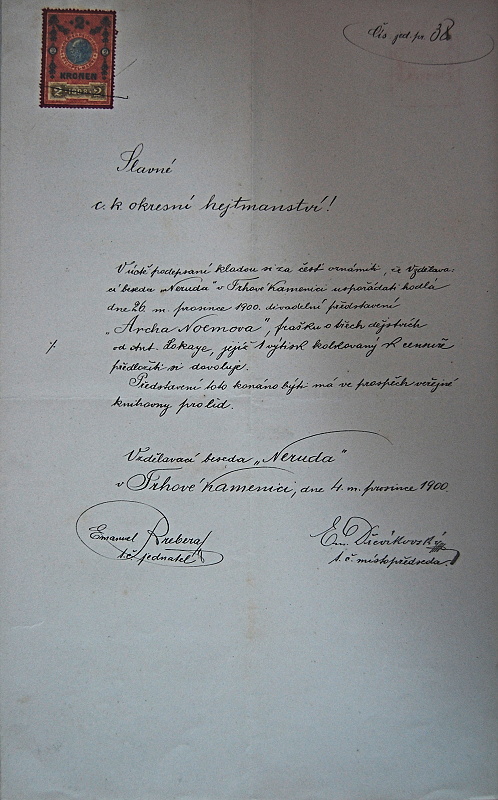 2
KRONEN
2 1898 2
Čís. jed. pr. 38
Slavné
c. k. okresní hejtmanství!
V úctě podepsaní kladou si za čest oznámiti, že Vzdělava-
cí beseda „Neruda" v Trhové Kamenici uspořádati hodlá
dne 26. m. prosince 1900. divadelní představení
„Archa Noemova", frašku o třech dějstvích
od Ant. Lokaye, jejíž 1 výtisk kolkovaný k censuře
předložiti si dovoluje.
Představení toto konáno býti má ve prospěch veřejné
knihovny pro lid.
Vzdělavací beseda „Neruda"
v Trhové Kamenici, dne 4. m. prosince 1900.
Emanuel
t. č. jednatel
Em.
t. č. místopředseda.